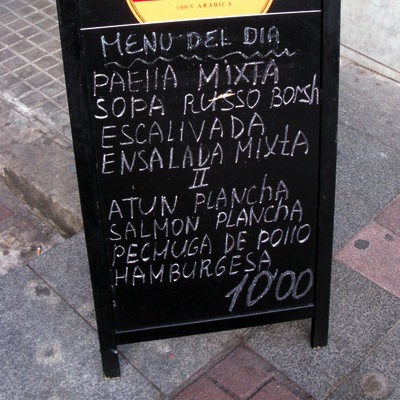 100% ARABICA
MENU DEL DIA
PAEllA MIXTA
SOPA RUSSO BORSH
ESCALIVADA
ENSALADA MIXTA
II
ATUN PLANCHA
SALMON PLANCHA
PECMUGA DE POllO
HAMBURGESA
10'00